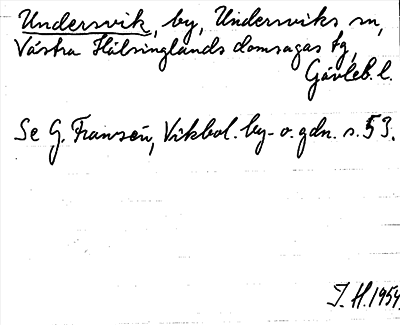 Undersvik, by, Undersviks sn,
Västra Hälsinglands domsagas tg,
Gävleb. l.
Se G. Franzén, Vikbol. by- o. gdn. s. 53.
J. H. 1954.